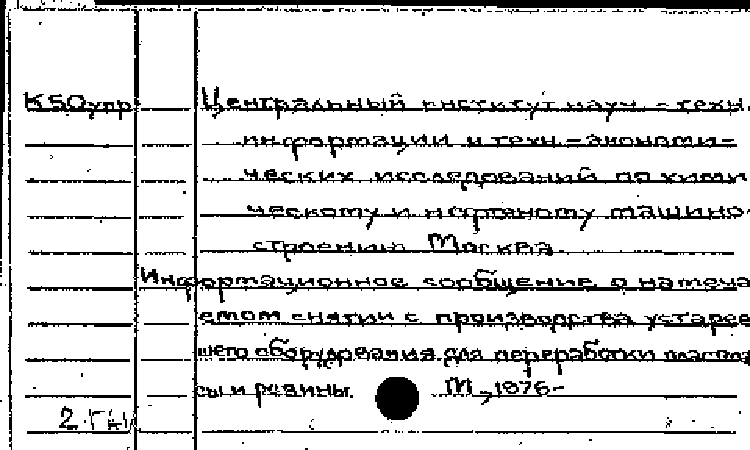 К50упр Центральный институт науч.-техн.
информации и техн.-экономи-
ческих исследований по хими
ческому и нефтяному машино-
строению Москва.
Информационное сообщение о намеча
емом снятии с производства устарев
шего оборудования для переработки пластмас
сы и резины. М., 1976-
2